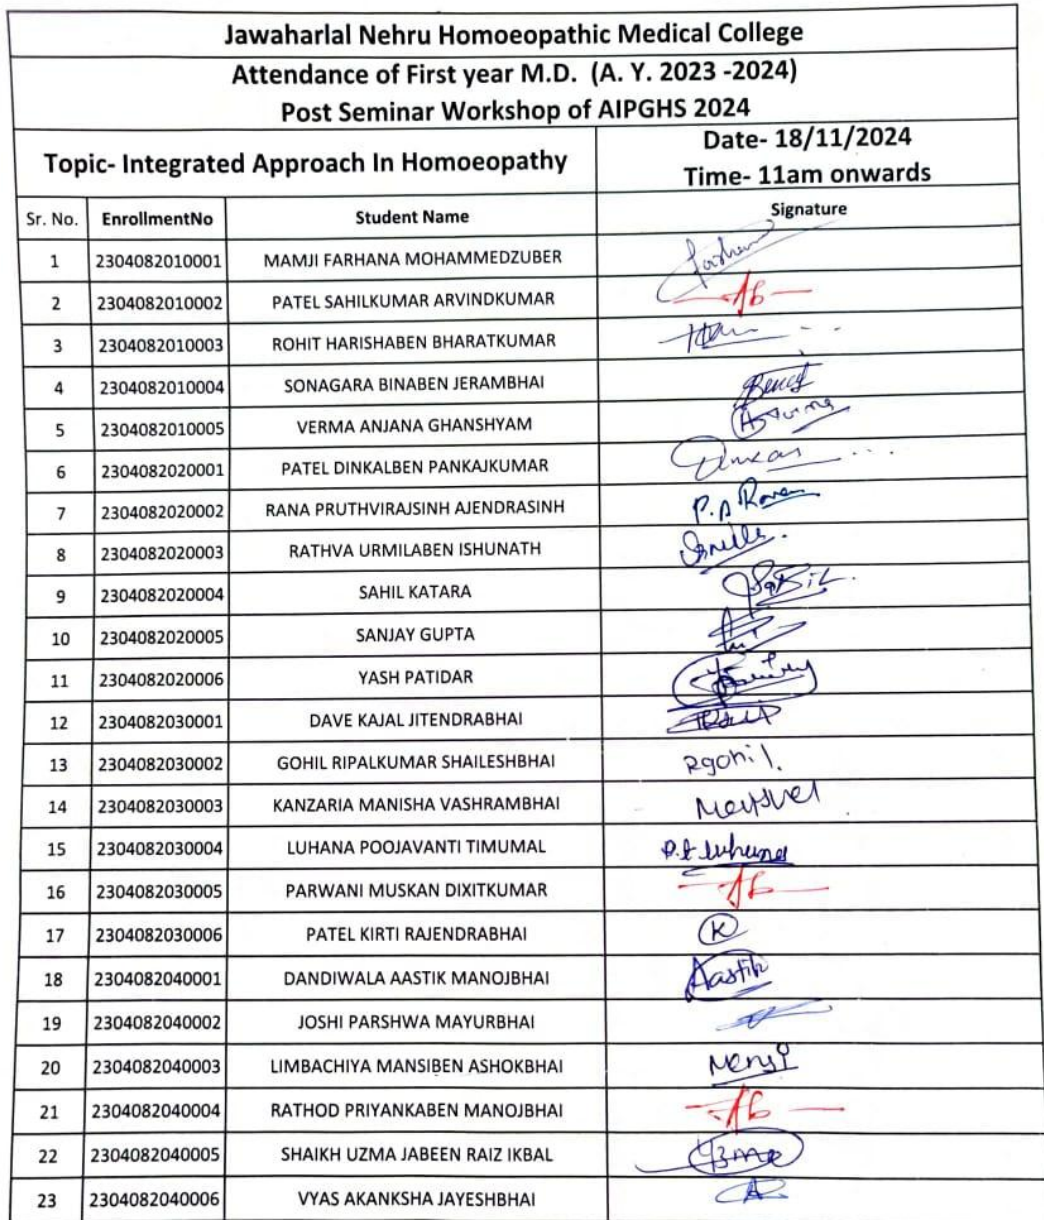 Jawaharlal Nehru Homoeopathic Medical College
Attendance of First year M.D. (A. Y. 2023 -2024)
Post Seminar Workshop of AIPGHS 2024
Topic- Integrated Approach In Homoeopathy
Date- 18/11/2024
Time- 11am onwards
Sr. No. EnrollmentNo Student Name Signature
1 2304082010001 MAMJI FARHANA MOHAMMEDZUBER
2 2304082010002 PATEL SAHILKUMAR ARVINDKUMAR Ab
3 2304082010003 ROHIT HARISHABEN BHARATKUMAR
4 2304082010004 SONAGARA BINABEN JERAMBHAI
5 2304082010005 VERMA ANJANA GHANSHYAM
6 2304082020001 PATEL DINKALBEN PANKAJKUMAR
7 2304082020002 RANA PRUTHVIRAJSINH AJENDRASINH
8 2304082020003 RATHVA URMILABEN ISHUNATH
9 2304082020004 SAHIL KATARA
10 2304082020005 SANJAY GUPTA
11 2304082020006 YASH PATIDAR
12 2304082030001 DAVE KAJAL JITENDRABHAI
13 2304082030002 GOHIL RIPALKUMAR SHAILESHBHAI Rgohil.
14 2304082030003 KANZARIA MANISHA VASHRAMBHAI
15 2304082030004 LUHANA POOJAVANTI TIMUMAL P.t luhana
16 2304082030005 PARWANI MUSKAN DIXITKUMAR Ab
17 2304082030006 PATEL KIRTI RAJENDRABHAI K
18 2304082040001 DANDIWALA AASTIK MANOJBHAI Aastik
19 2304082040002 JOSHI PARSHWA MAYURBHAI
20 2304082040003 LIMBACHIYA MANSIBEN ASHOKBHAI Mansi
21 2304082040004 RATHOD PRIYANKABEN MANOJBHAI Ab
22 2304082040005 SHAIKH UZMA JABEEN RAIZ IKBAL
23 2304082040006 VYAS AKANKSHA JAYESHBHAI